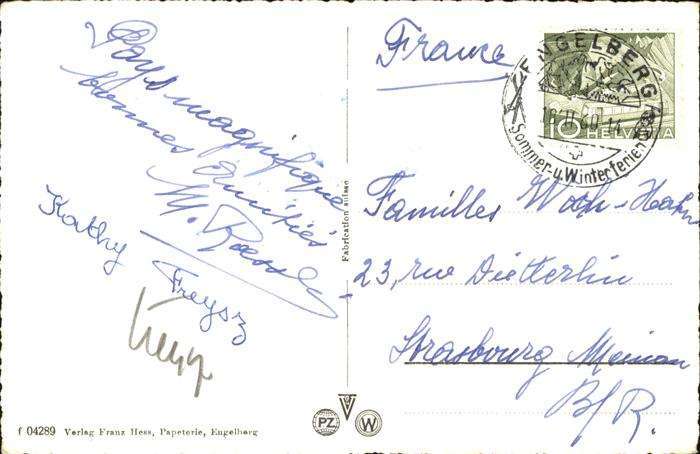 Pays magnifique
bonnes Amitiés
M. Roessler
Kathy Freysz
Fabrication suisse
f 04289 Verlag Franz Hess, Papeterie, Engelberg
PZ
W
France
ENGELBERG
60-14
Sommer-u.Winterferien
10 HELVETIA
Familles Woch-Hahn
23, rue Dietterlin
Strasbourg Meinau
B/R.